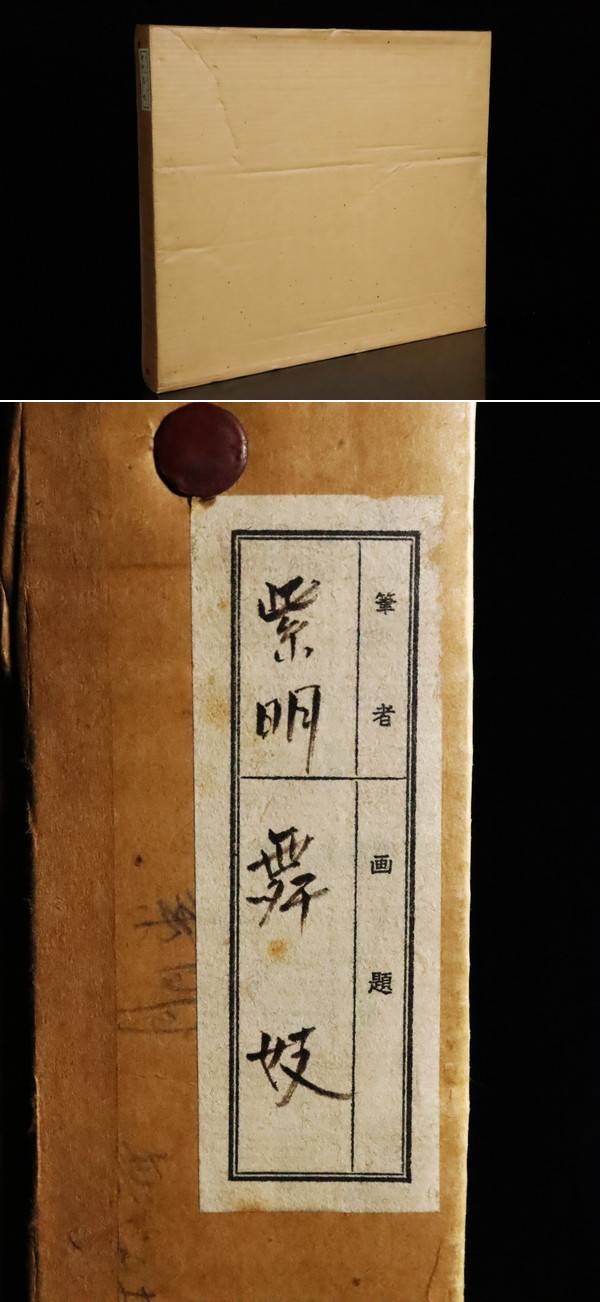 筆者
紫明
画題
舞妓